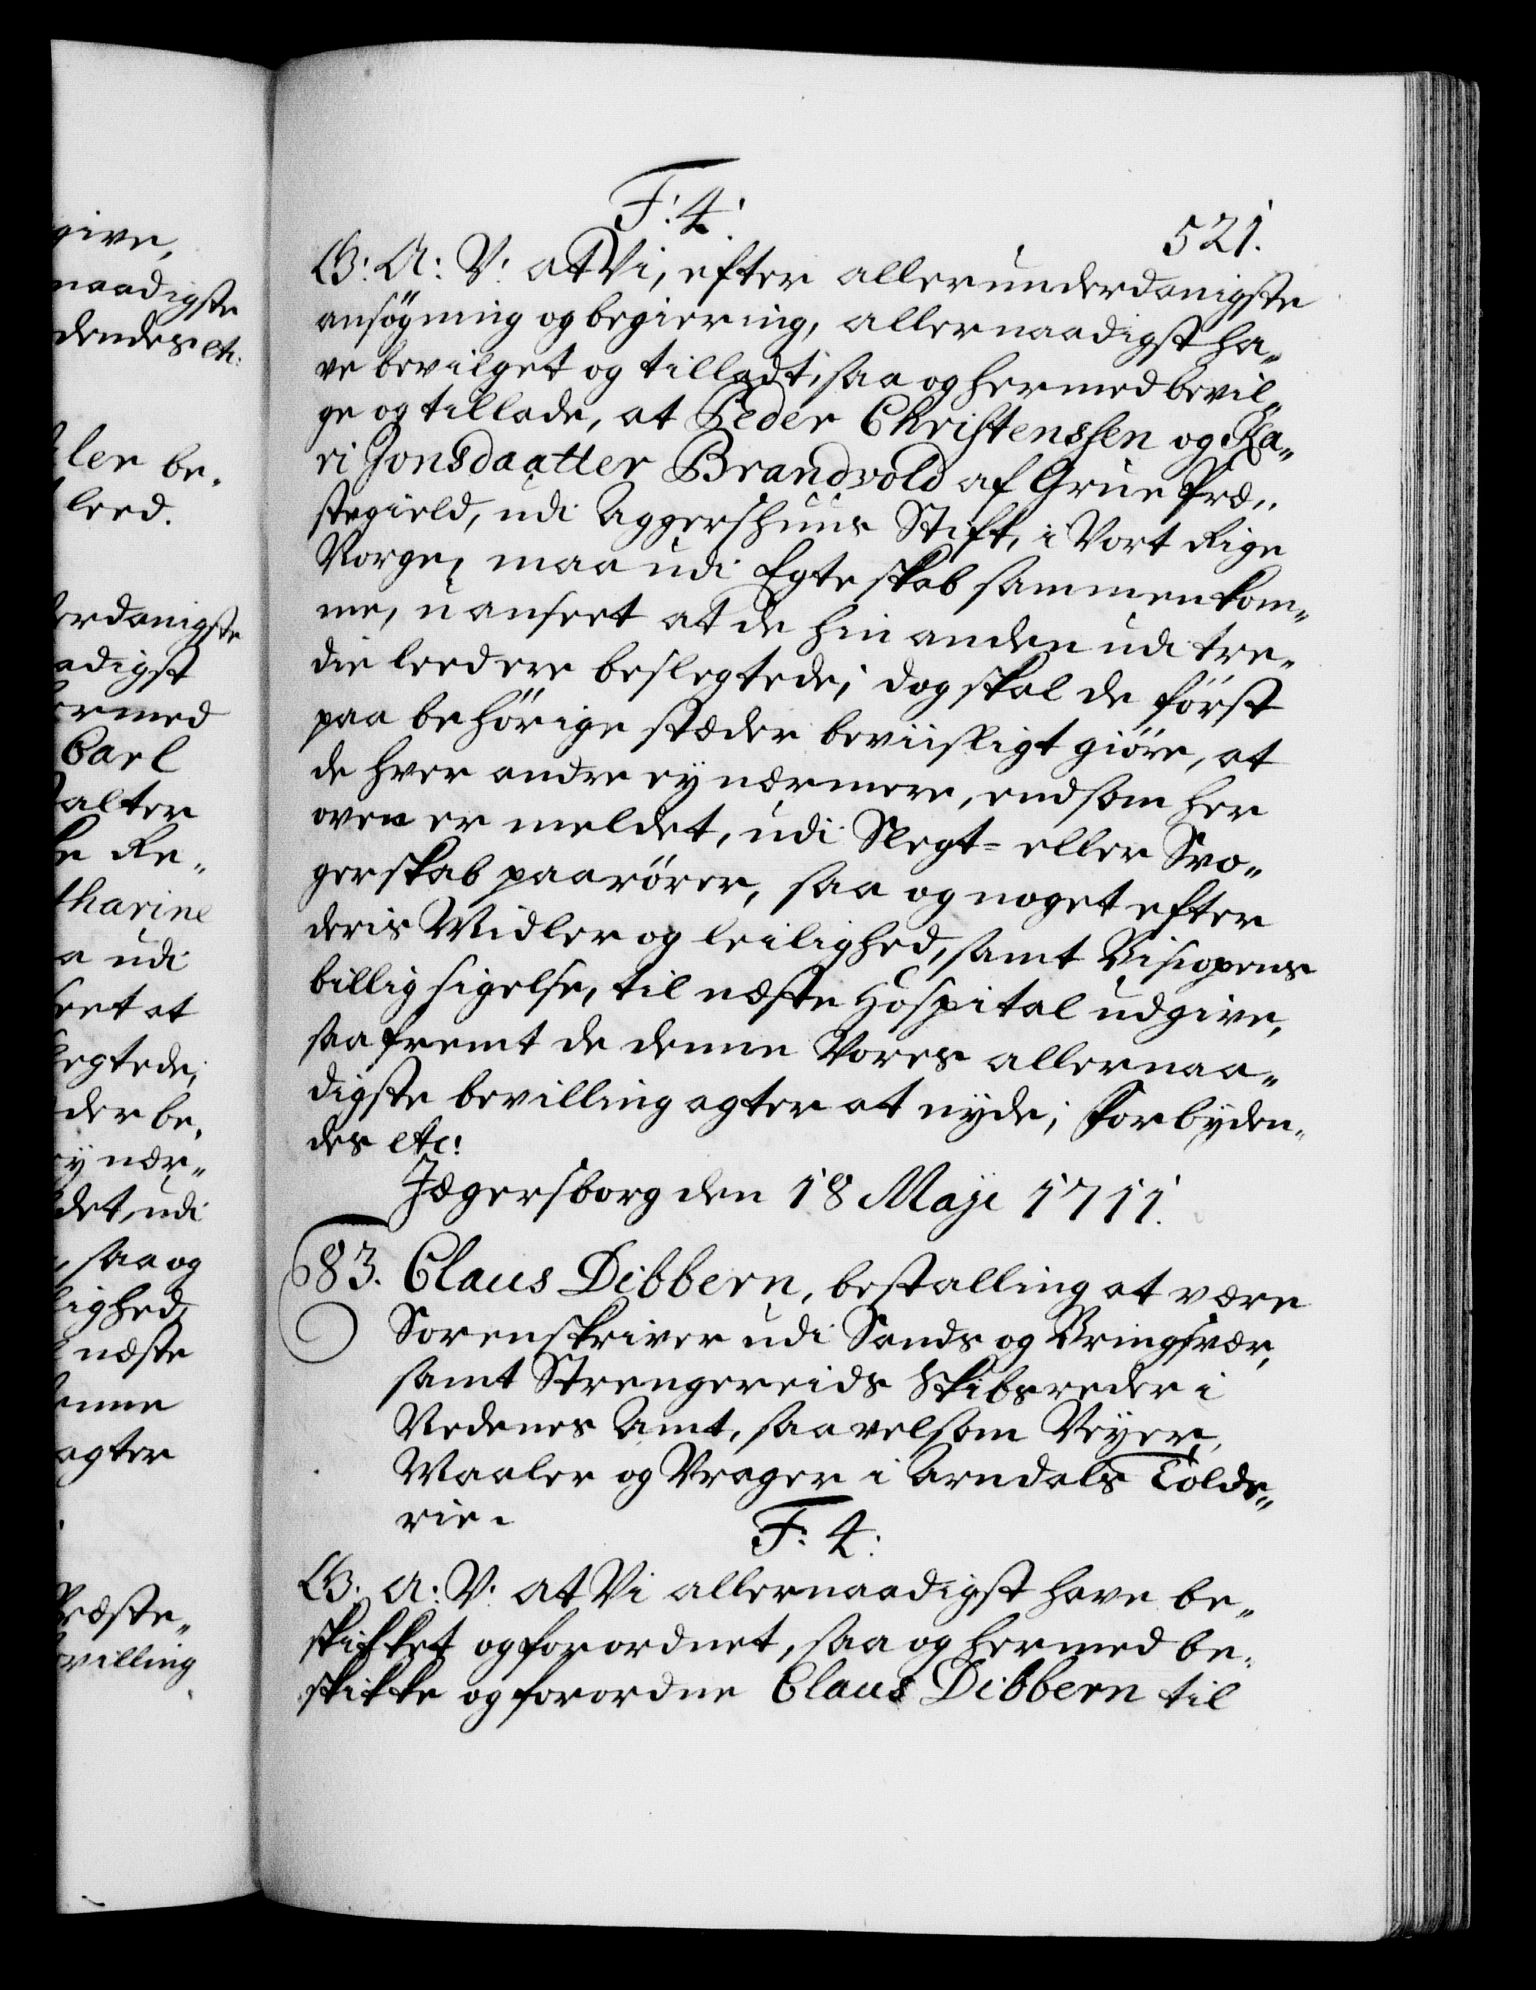 give,
naadigste
dendes etc:
ler be,
leed.
erdanigste
adigst
ermed
Carl
alter
Re„
tharine
a udi
seet at
legtede;
der be,
ey nær„
det, udi
, saa og
lighed,
næste
denne
agter
Præste„
villing
F: 4: 521.
G: A: V: at Vi, efter allerunderdanigste
ansögning og begiering, allernaadigst ha„
ve bevilget og tilladt, saa og hermed bevil„
ge og tillade, at Peder Christenssen og Ka„
ri Jonsdaatter Brandvold af Grue Præ„
stegield, udi Aggershuus Stift, i Vort Rige
Norge, maa udi Egteskab sammenkom„
me, uanseet at de hin anden udi tre„
die leed ere beslegtede; dog skal de först
paa behörige stæder beviisligt giöre, at
de hver andre ey nærmere, end som her
oven er meldet, udi Slegt- eller Svo„
gerskab paarörer, saa og noget efter
deris Midler og leilighed, samt Bispens
billig sigelse, til næste Hospital udgive,
saafremt de denne Vores allernaa„
digste bevilling agter at nyde; Forbyden„
des etc:
Jægersborg den 18 Maji 1711.
83. Claus Dibbern, bestalling at være
Sorenskriver udi Sands og Bringsvær,
samt Strengereids Skibsreder i
Nedenes Amt, saavelsom Veyer,
Maaler og Vrager i Arndals Tolde„
rie.
F: 4:
G: A: V: at Vi allernaadigst have be„
skikket og forordnet, saa og hermed be„
skikke og forordne Claus Dibbern til